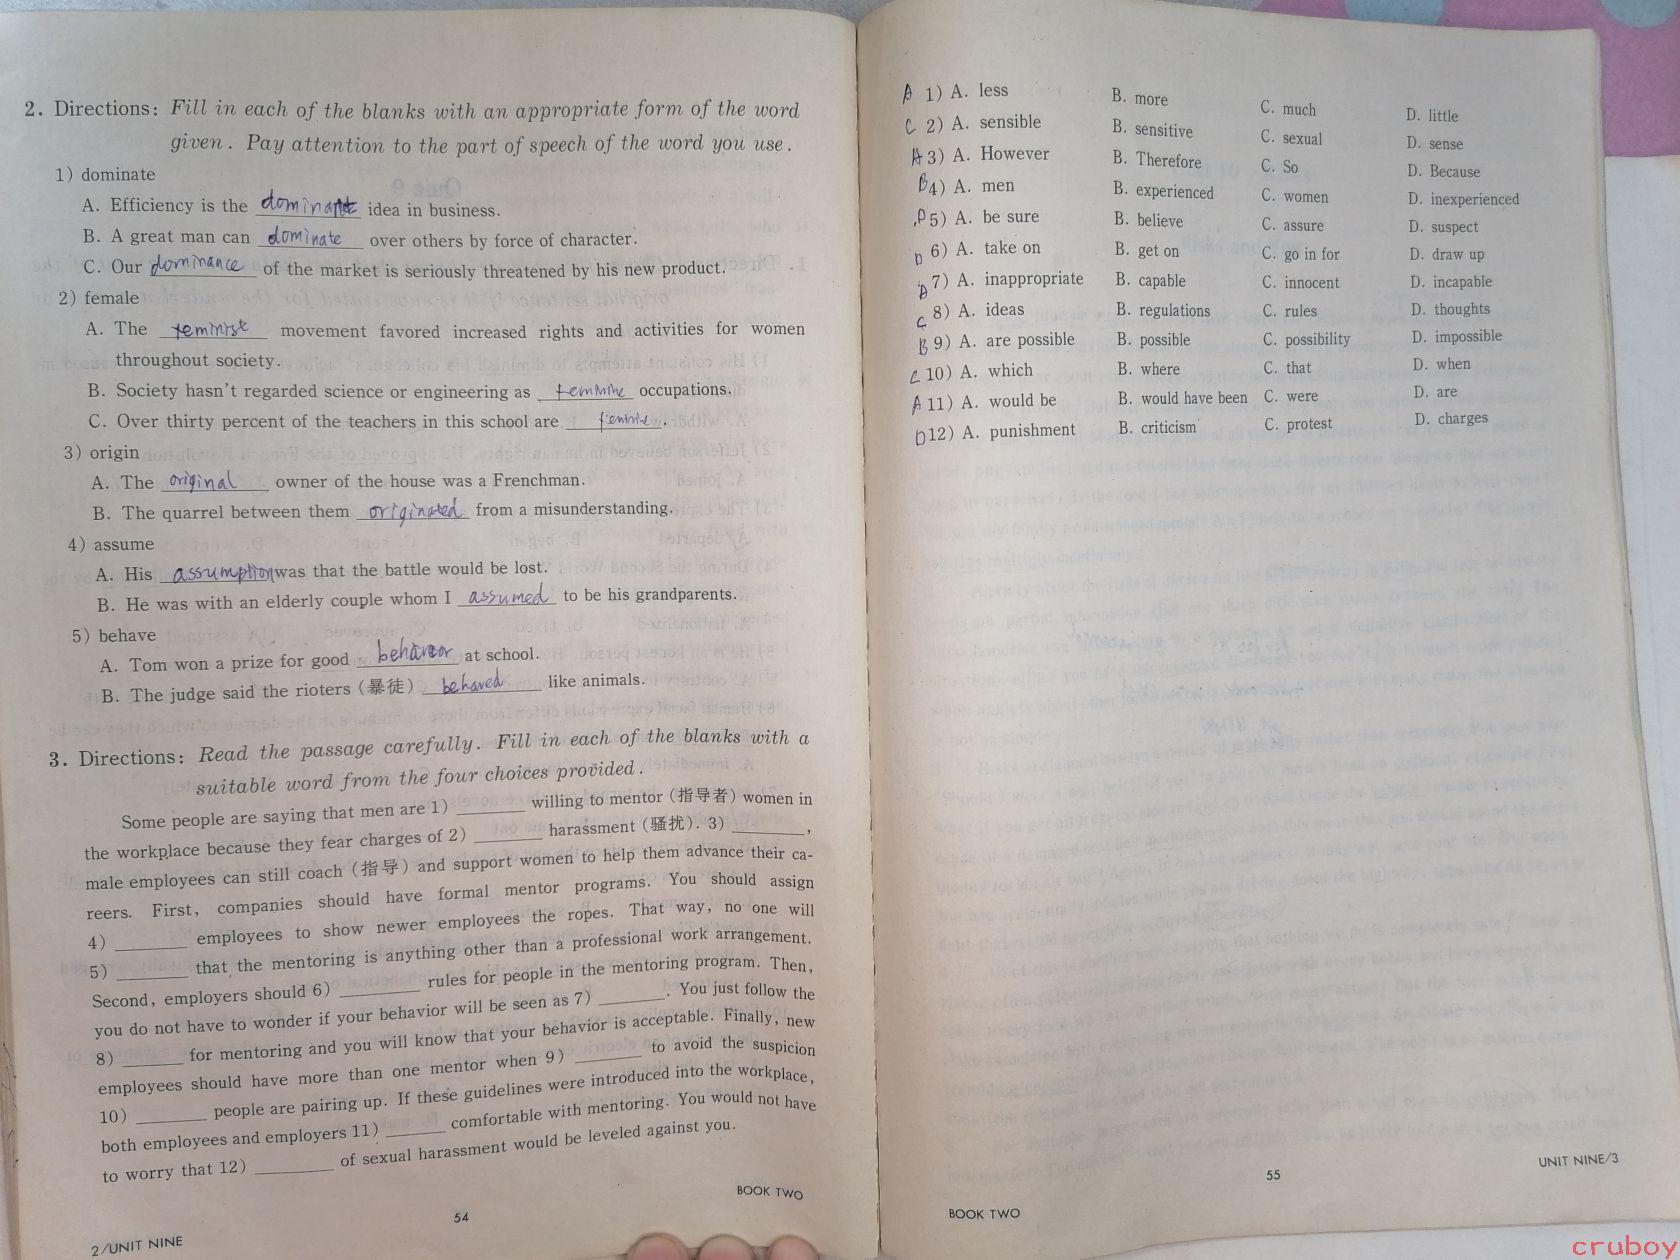 2. Directions: Fill in each of the blanks with an appropriate form of the word
given. Pay attention to the part of speech of the word you use.
1) dominate
A. Efficiency is the dominant idea in business.
B. A great man can dominate over others by force of character.
C. Our dominance of the market is seriously threatened by his new product.
2) female
A. The feminist movement favored increased rights and activities for women
throughout society.
B. Society hasn't regarded science or engineering as feminine occupations.
C. Over thirty percent of the teachers in this school are .
3) origin
A. The original owner of the house was a Frenchman.
B. The quarrel between them originated from a misunderstanding.
4) assume
A. His assumption was that the battle would be lost.
B. He was with an elderly couple whom I assumed to be his grandparents.
5) behave
A. Tom won a prize for good behavior at school.
B. The judge said the rioters (暴徒) behaved like animals.
3. Directions: Read the passage carefully. Fill in each of the blanks with a
suitable word from the four choices provided.
Some people are saying that men are 1) ______ willing to mentor (指导者) women in
the workplace because they fear charges of 2) ______ harassment (骚扰). 3) ______,
male employees can still coach (指导) and support women to help them advance their ca-
reers. First, companies should have formal mentor programs. You should assign
4) ______ employees to show newer employees the ropes. That way, no one will
5) ______ that the mentoring is anything other than a professional work arrangement.
Second, employers should 6) ______ rules for people in the mentoring program. Then,
you do not have to wonder if your behavior will be seen as 7) ______. You just follow the
8) ______ for mentoring and you will know that your behavior is acceptable. Finally, new
employees should have more than one mentor when 9) ______ to avoid the suspicion
10) ______ people are pairing up. If these guidelines were introduced into the workplace,
both employees and employers 11) ______ comfortable with mentoring. You would not have
to worry that 12) ______ of sexual harassment would be leveled against you.
BOOK TWO
54
2/UNIT NINE
A 1) A. less B. more C. much D. little
C 2) A. sensible B. sensitive C. sexual D. sense
A 3) A. However B. Therefore C. So D. Because
B 4) A. men B. experienced C. women D. inexperienced
D 5) A. be sure B. believe C. assure D. suspect
D 6) A. take on B. get on C. go in for D. draw up
A 7) A. inappropriate B. capable C. innocent D. incapable
C 8) A. ideas B. regulations C. rules D. thoughts
B 9) A. are possible B. possible C. possibility D. impossible
C 10) A. which B. where C. that D. when
A 11) A. would be B. would have been C. were D. are
D 12) A. punishment B. criticism C. protest D. charges
UNIT NINE/3
55
BOOK TWO
cruboy